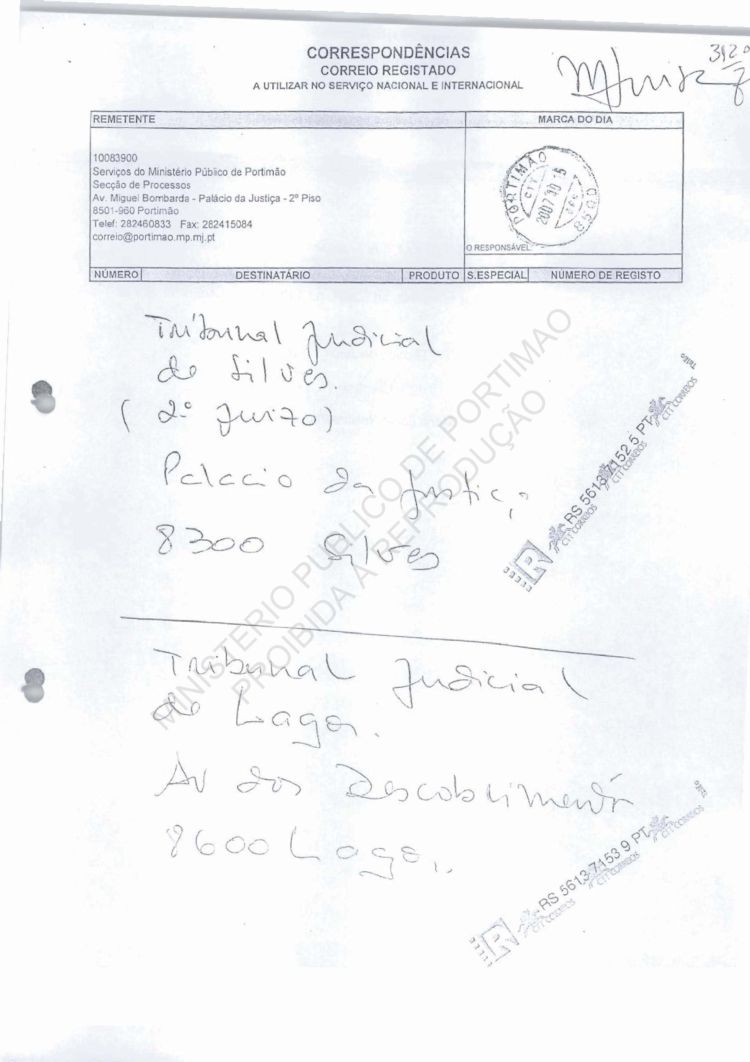 3120
CORRESPONDÊNCIAS
CORREIO REGISTADO
A UTILIZAR NO SERVIÇO NACIONAL E INTERNACIONAL
REMETENTE
MARCA DO DIA
10083900
Serviços do Ministério Público de Portimão
Secção de Processos
Av. Miguel Bombarda - Palácio da Justiça - 2º Piso
8501-960 Portimão
Telef: 282460833 Fax: 282415084
correio@portimao.mp.mj.pt
PORTIMÃO
CTT
O RESPONSÁVEL
NÚMERO DESTINATÁRIO PRODUTO S.ESPECIAL NÚMERO DE REGISTO
Tribunal Judicial
de Silves.
(2º Juizo)
Palacio da Justiça
8300 Silves
RS 5613 7152 5 PT
CTT CORREIOS
CTT CORREIOS
R
MINISTERIO PUBLICO DE PORTIMAO
PROIBIDA A REPRODUÇÃO
Tribunal Judicial
de Lagos.
Av dos Descobrimentos
8600 Lagos.
RS 5613 7153 9 PT
CTT CORREIOS
CTT CORREIOS
R